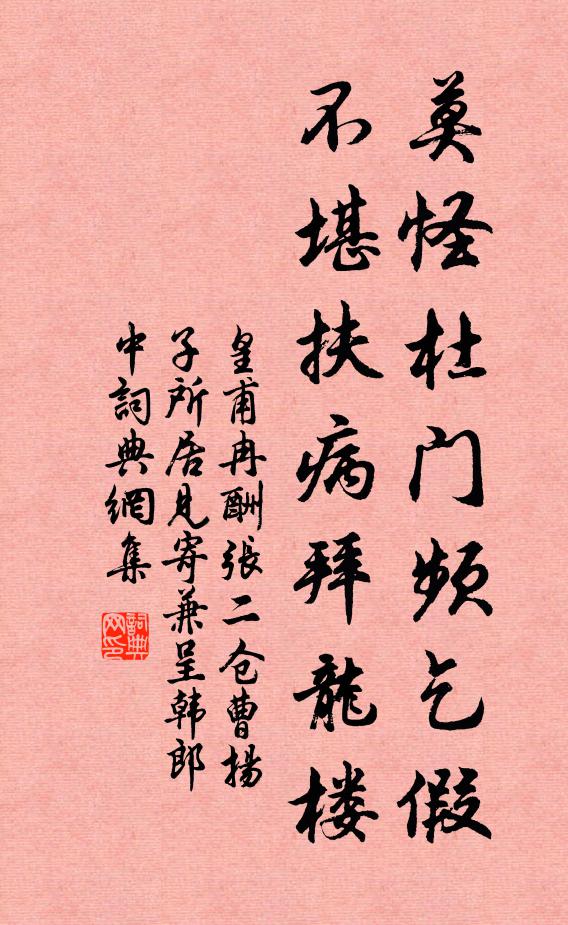 莫怪杜门频乞假
不堪扶病拜龍楼
皇甫冉酬張二仓曹揚
子所居見寄兼呈韩郎
中詞典網集
詞典
网印